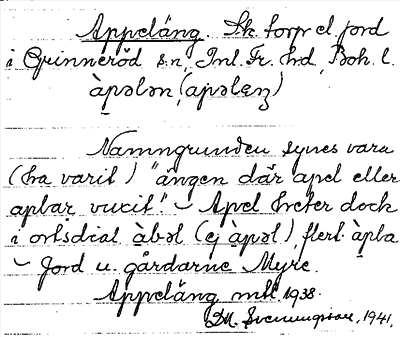 Appeläng. Sk. torp el. jord
i Grinneröd sn, Inl. Fr. hd, Boh. l.
àpəlɛn, (apəlɛŋ)
Namngrunden synes vara
(ha varit) "ängen där apel eller
aplar vuxit." – Apel heter dock
i ortsdial àbəl (ej àpəl), flert. àpla
– Jord u. gårdarne Myre.
Appeläng mtl 1938.
1941.